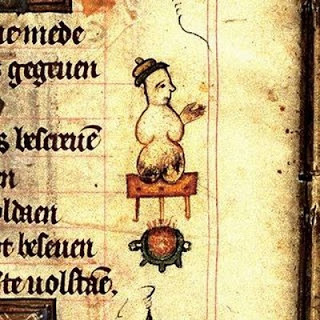 mede
gegeuen
s bescreuē
n
oldaen
t beseuen
ste uolstaē.